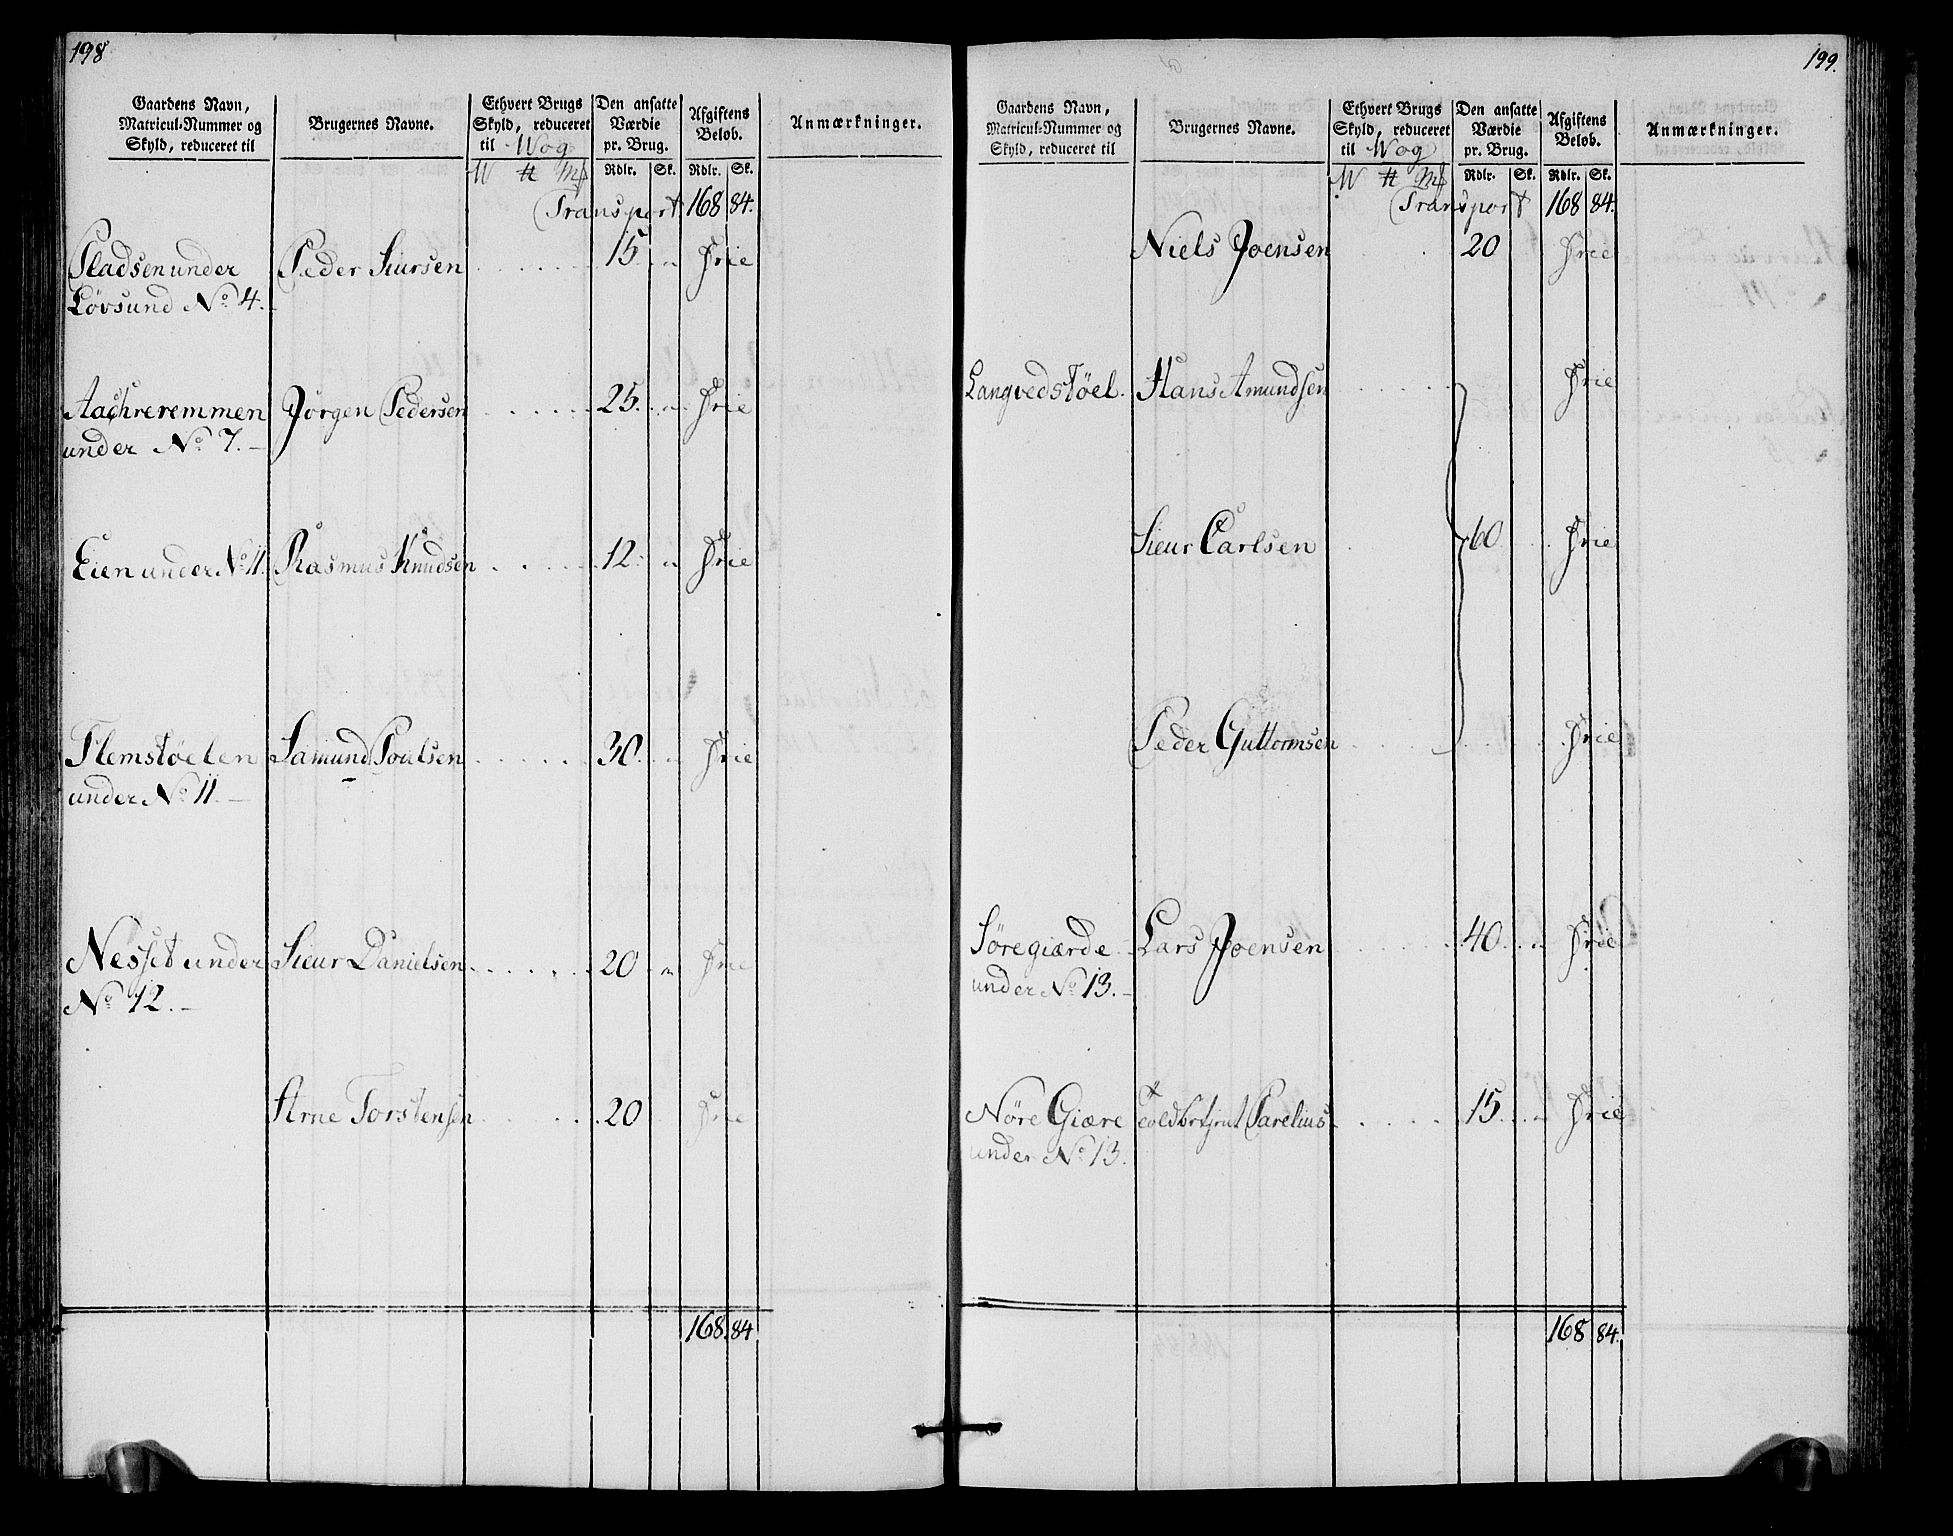 198
Gaardens Navn, Matricul-Nummer og Skyld, reduceret til
Brugernes Navne.
Ethvert Brugs Skyld, reduceret til Wog
Den ansatte Værdie pr. Brug.
Afgiftens Beløb.
Anmærkninger.
Rdlr. Sk. Rdlr. Sk.
Transport 168 84.
Pladsen under Peder Siursen 15 Frie
Løvsund No 4.
Aachreremmen Jørgen Pedersen 25. Frie
under No 7.
Eien under No 11. Rasmus Knudsen 12. Frie
Flemstøelen Samund Poulsen 30. Frie
under No 11.
Nesset under Sieur Danielsen 20 Frie
No 12.
Arne Torstensen 20 Frie
168. 84
199.
Gaardens Navn, Matricul-Nummer og Skyld, reduceret til
Brugernes Navne.
Ethvert Brugs Skyld, reduceret til Wog
Den ansatte Værdie pr. Brug.
Afgiftens Beløb.
Anmærkninger.
Rdlr. Sk. Rdlr. Sk.
Transport 168 84.
Niels Joensen 20 Frie
Langvedstøel. Hans Amundsen Frie
Sieur Carlsen 60 Frie
Peder Guttormsen Frie
Søregiærde Lars Joensen 40. Frie
under No 13.
Nøre Giære Parelius 15. Frie
under No 13.
168 84.